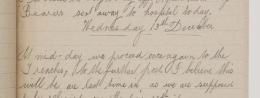 Bearer sent away to hospital today.
Wednesday 13th December
At mid-day we proceed once again to the
Trenches, to the further post I believe this
will be our last time in, as we are supposed